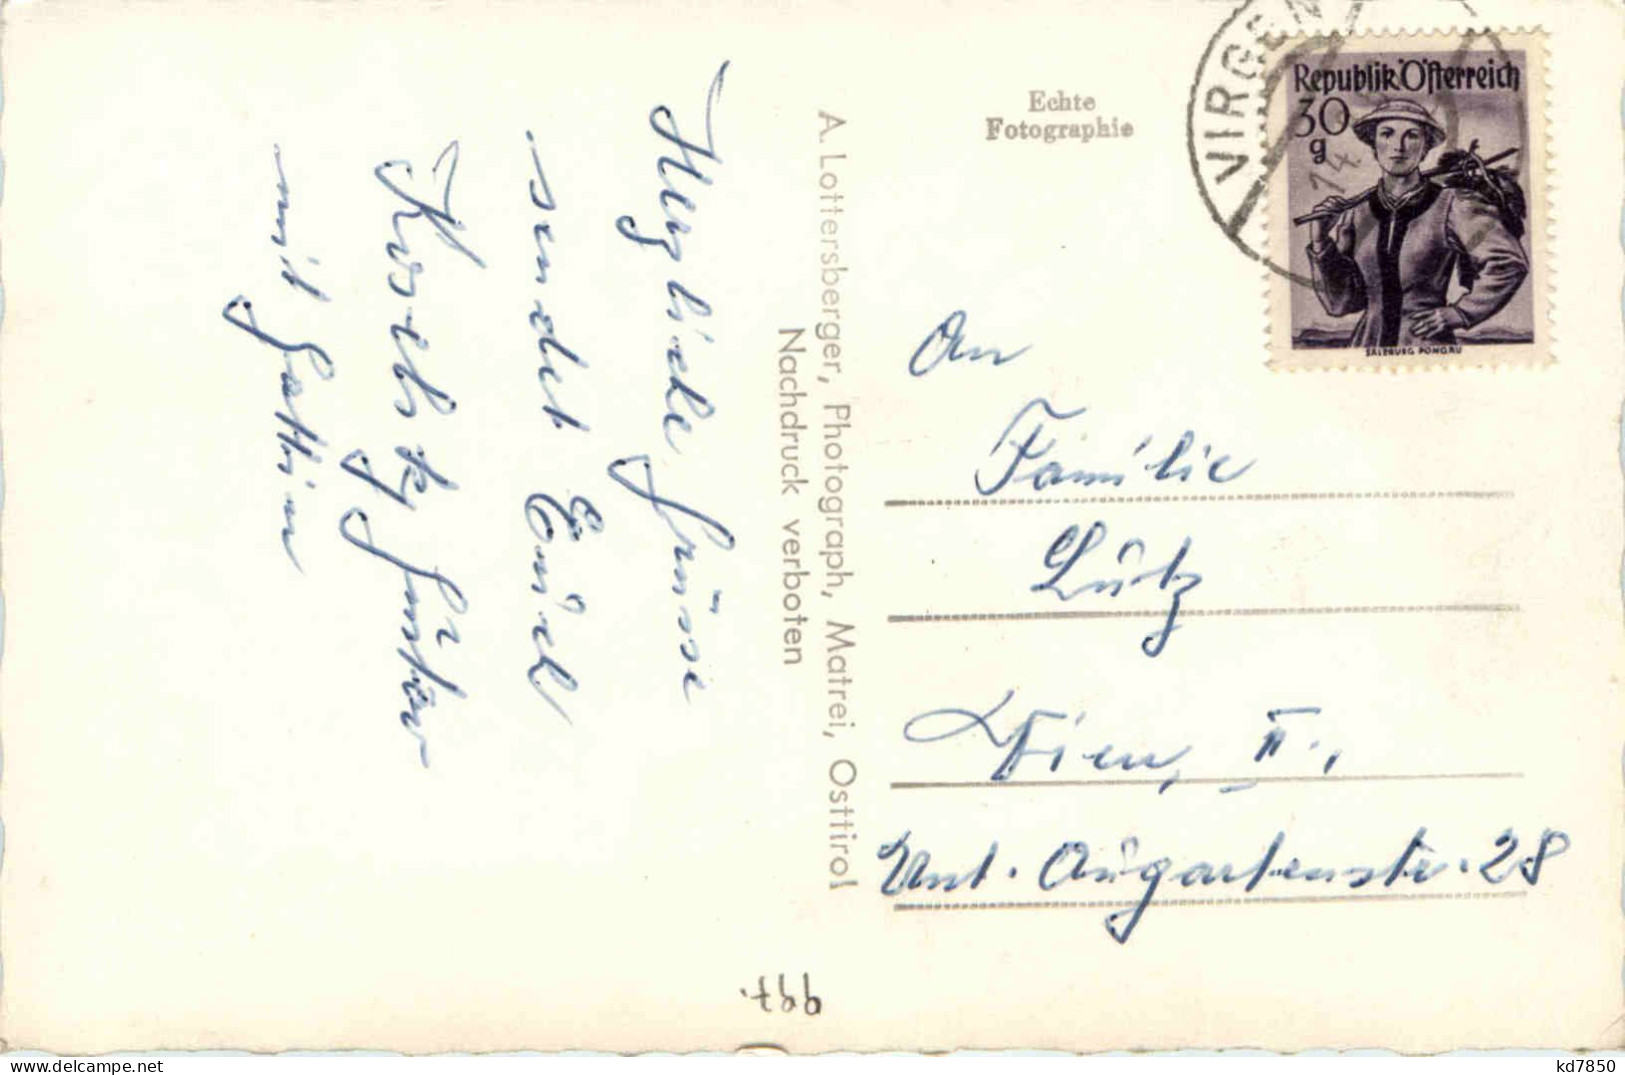 Herzliche Grüsse
sendet Euch
Günter
mit Gattin
A. Lottersberger, Photograph, Matrei, Osttirol
Nachdruck verboten
Echte
Fotographie
VIRGEN
14
Republik Österreich
30
g
SALZBURG PONGAU
An
Familie
Lutz
Wien, II.,
Unt. Augartenstr. 28
997.
kd7850